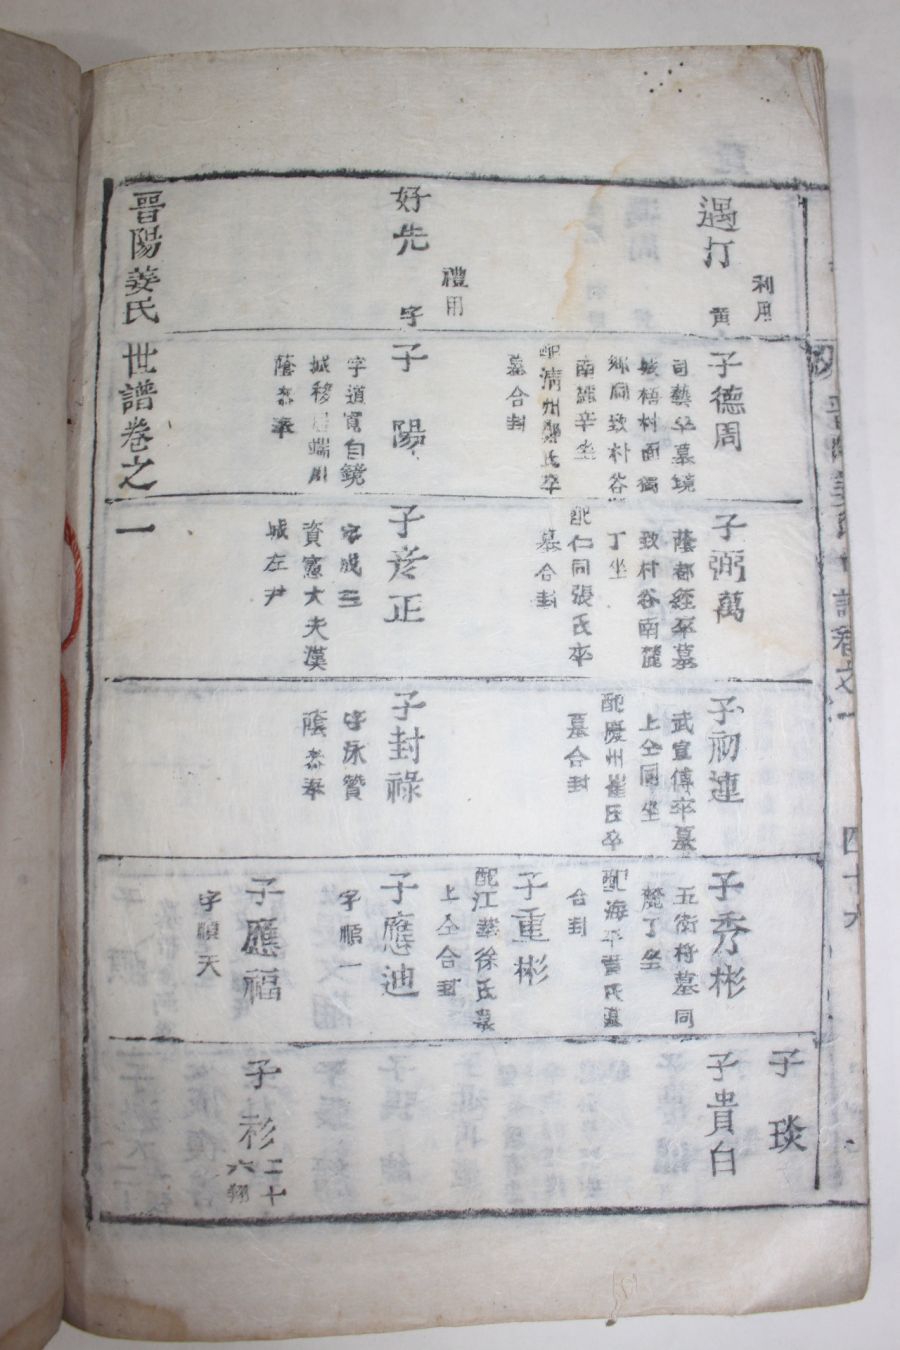 利用
遇汀
禮用
好先
字
子德周
司藝卒墓境
城梧村面獨
鄉局致朴谷
南麓辛坐
配清州鄭氏卒
墓合封
子陽
字道寬自鏡
城移居端川
蔭叅奉
子弼萬
蔭都經卒墓
致朴谷南麓
丁坐
配仁同張氏卒
墓合封
子彦正
字成三
資憲大夫漢
城左尹
子初連
武宣傳卒墓
上仝同坐
配慶州崔氏卒
墓合封
子封祿
字泳贊
蔭叅奉
子秀彬
五衛將墓同
麓丁坐
配海平 氏墓
合封
子重彬
配江華徐氏墓
上仝合封
子應迪
字順一
子應福
字順天
子琰
子貴白
子衫
二十
六翔
晋陽姜氏世譜卷之一
四十六